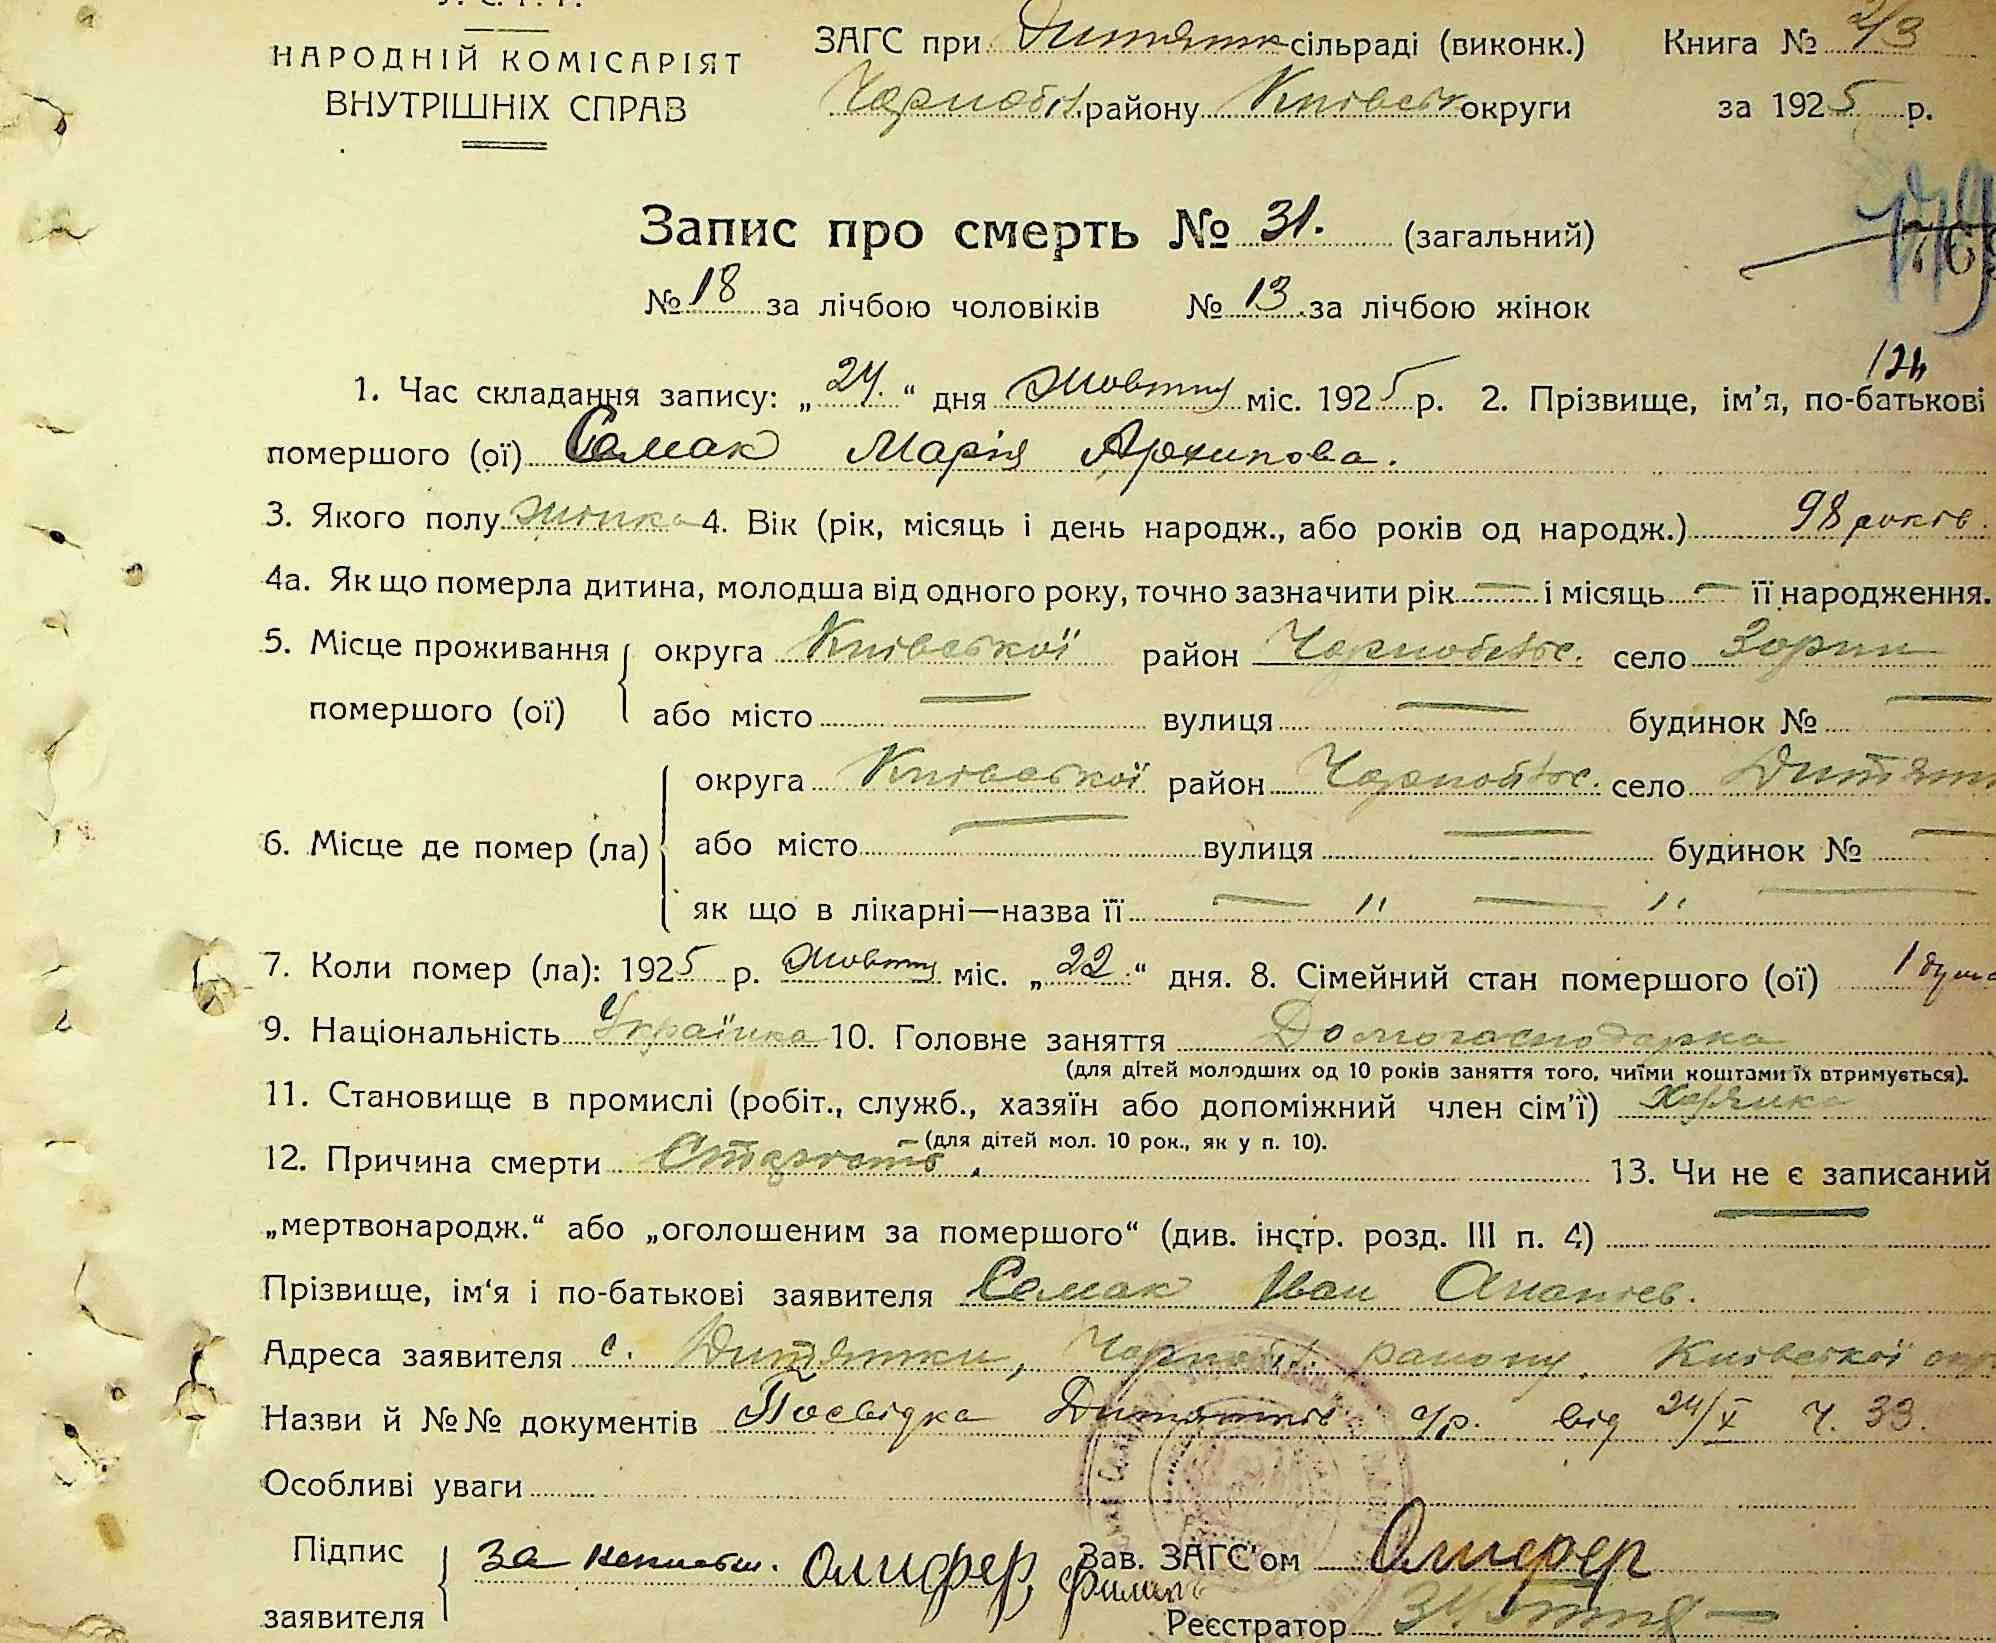 У. С. Р. Р.
НАРОДНІЙ КОМІСАРІЯТ
ВНУТРІШНІХ СПРАВ
ЗАГС при Дитятк сільраді (виконк.) Книга № 2/3
Чорноб. району Київськ округи за 1925 р.
Запис про смерть № 31. (загальний)
№ 18 за лічбою чоловіків № 13 за лічбою жінок
1. Час складання запису: „24.“ дня Жовтня міс. 1925 р. 2. Прізвище, ім’я, по-батькові
помершого (ої) Семак Марія Архипова.
3. Якого полу жінка 4. Вік (рік, місяць і день народж., або років од народж.) 98 років.
4а. Як що померла дитина, молодша від одного року, точно зазначити рік — і місяць — її народження.
5. Місце проживання округа Київської район Чорнобильс. село Зорин
помершого (ої) або місто — вулиця — будинок № —
округа Київської район Чорнобильс. село Дитятк
6. Місце де помер (ла) або місто — вулиця — будинок № —
як що в лікарні—назва її — " — " —
7. Коли помер (ла): 1925 р. Жовтня міс. „22.“ дня. 8. Сімейний стан помершого (ої) 1 душа
9. Національність Українка 10. Головне заняття Домогосподарка
(для дітей молодших од 10 років заняття того, чиїми коштами їх втримується).
11. Становище в промислі (робіт., служб., хазяїн або допоміжний член сім’ї)
(для дітей мол. 10 рок., як у п. 10).
12. Причина смерти Старість. 13. Чи не є записаний
„мертвонародж.“ або „оголошеним за помершого“ (див. інстр. розд. III п. 4) —
Прізвище, ім‘я і по-батькові заявителя Семак Іван Ананіев.
Адреса заявителя с. Дитятки, Чорноб. району, Київської окр
Назви й №№ документів Посвідка Дитятків с/р. від 24/X ч. 33.
Особливі уваги
Підпис за неписьм. Олифер Зав. ЗАГС'ом Олифер
заявителя Реєстратор